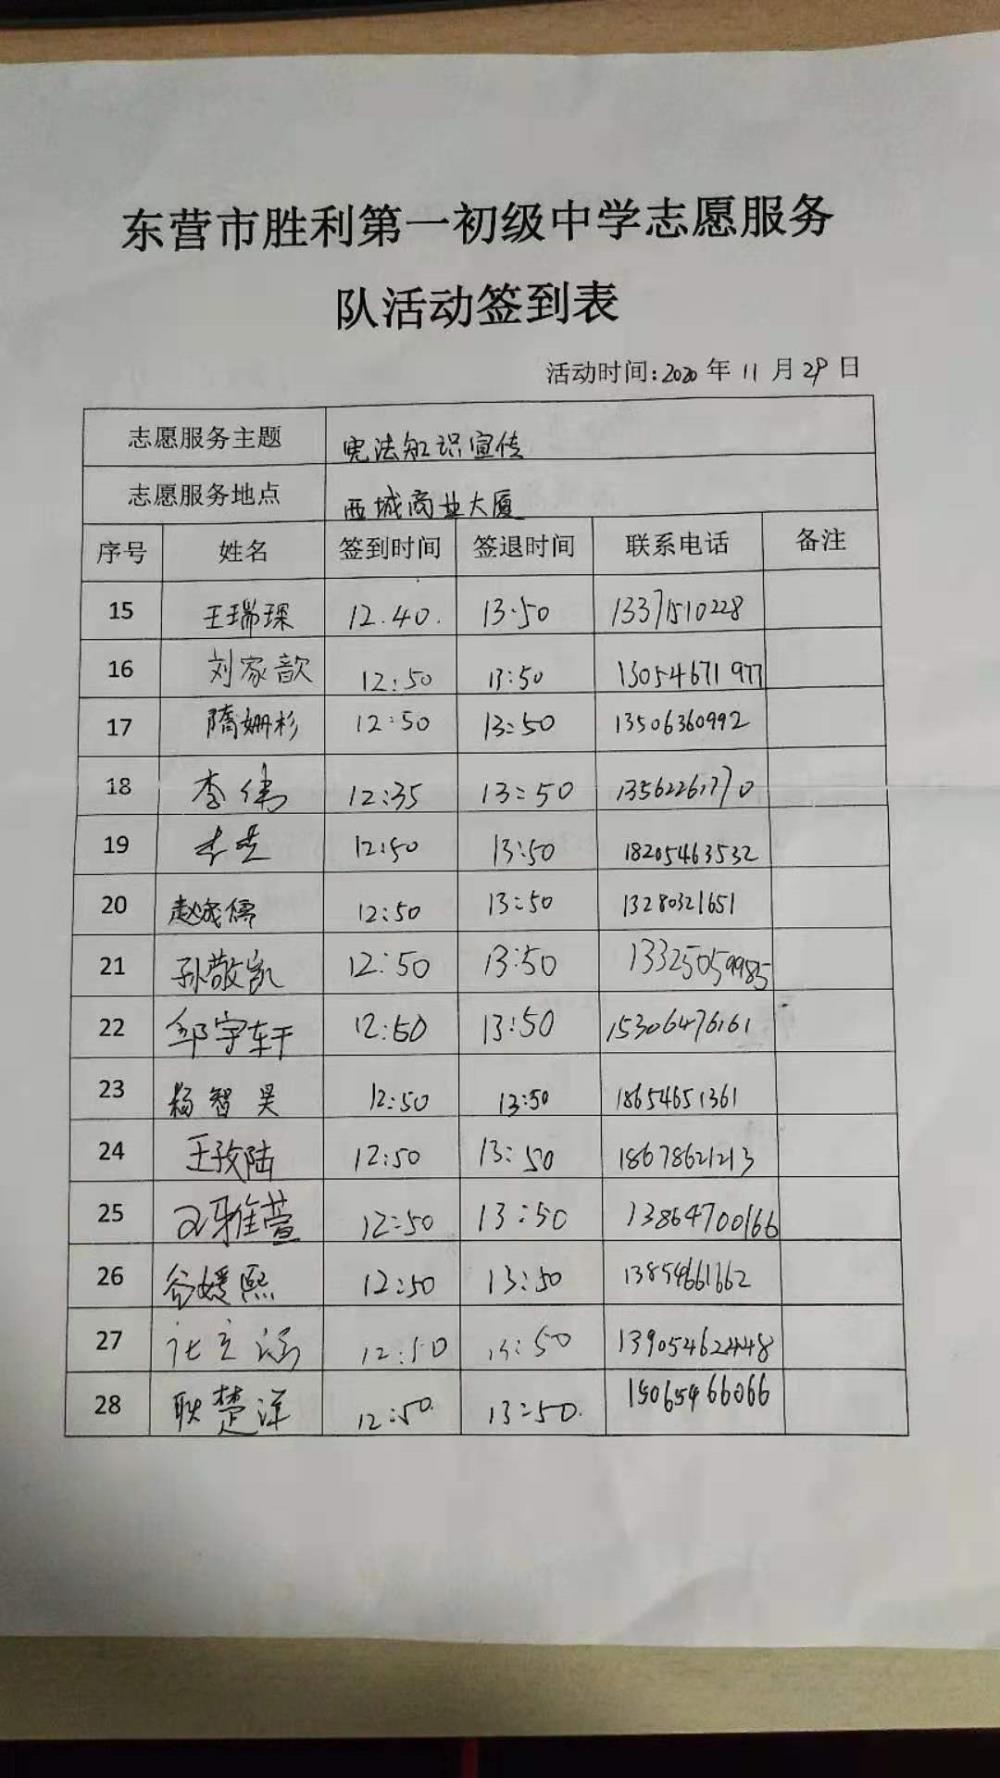 东营市胜利第一初级中学志愿服务
队活动签到表
活动时间:2020 年 11 月 29 日
志愿服务主题 宪法知识宣传
志愿服务地点 西城商业大厦
序号 姓名 签到时间 签退时间 联系电话 备注
15 王瑞琛 12.40. 13.50 13371510228
16 刘家歆 12:50 13:50 13054671977
17 隋姗杉 12:50 13:50 13506360992
18 李伟 12:35 13:50 13562261770
19 12:50 13:50 18205463532
20 赵晟儒 12:50 13:50 13280321651
21 孙敬凯 12:50 13:50 13325059985
22 邹宇轩 12:50 13:50 15306476161
23 杨智昊 12:50 13:50 18654651361
24 王孜陆 12:50 13:50 18678621213
25 雅萱 12:50 13:50 13864700166
26 谷媛熙 12:50 13:50 13854661662
27 12:50 13:50 13905462448
28 耿楚洋 12:50. 13:50. 15065466066